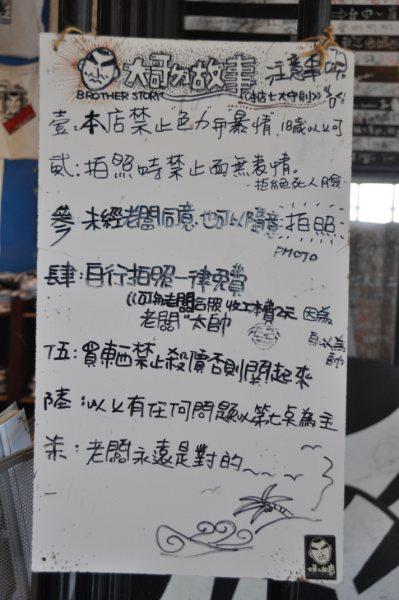 大哥ㄉ故事 注意事項
BROTHER STORY 《本店七大守則》
壹:本店禁止色力與暴情, 18歲以上可
貳:拍照時禁止面無表情。
-拒絕死人臉
參:未經老闆同意也可以隨意拍照
PHOTO
肆:自行拍照一律免費
(可與老闆合照 收工本費2元 因為
老闆"太帥 自以為帥
伍:買東西禁止殺價否則關起來
陸:以上有任何問題以第七点為主
柒:老闆永遠是對的~~
大哥ㄉ故事